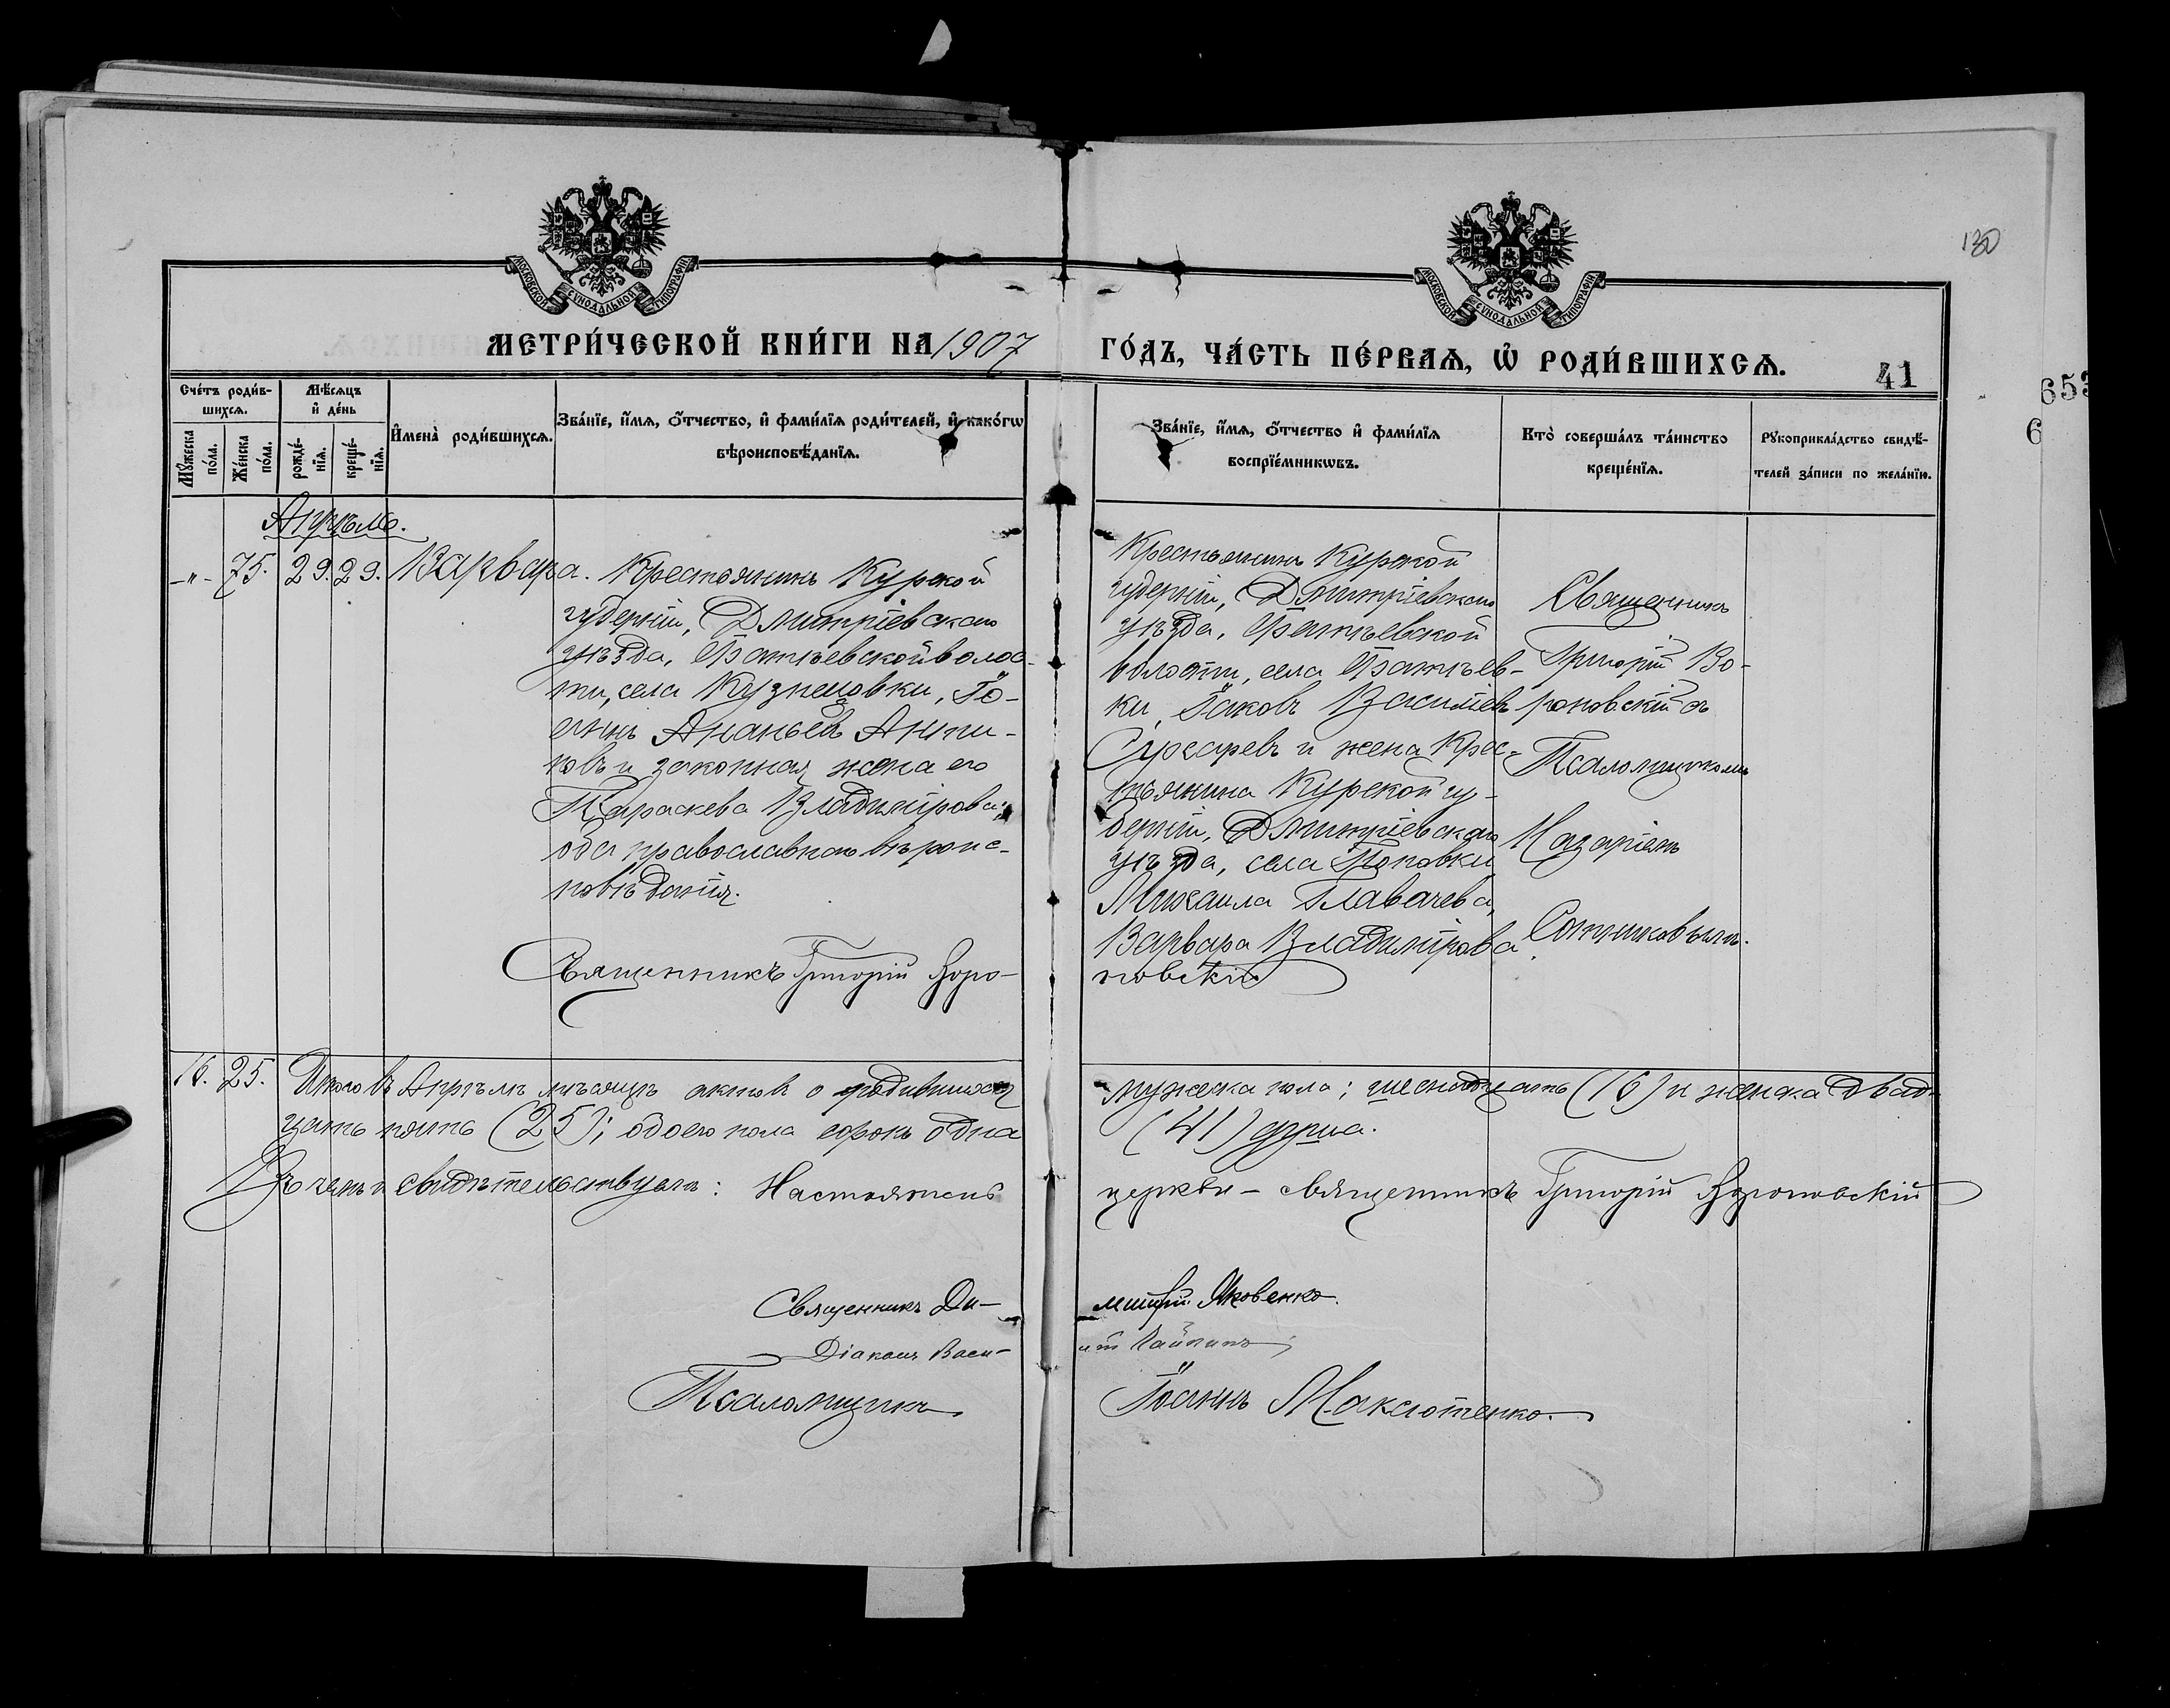 130
МОСКОВСКОЙ СѴНОДАЛЬНОЙ ТИПОГРАФІИ
МОСКОВСКОЙ СѴНОДАЛЬНОЙ ТИПОГРАФІИ
МЕТРИ́ЧЕСКОЙ КНИ́ГИ НА 1907
ГО́ДЪ, ЧА́СТЬ ПЕ́РВАѦ, Ѡ҆ РОДИ́ВШИХСѦ.
41
653
6
Сче́тъ роди́в-
шихсѧ.
Мѣ́сѧцъ
и҆ де́нь
Мꙋ́жеска по́ла.
Же́нска по́ла.
рожде́-нїѧ.
креще́-нїѧ.
И҆мена̀ роди́вшихсѧ.
Зва́нїе, и҆́мѧ, ѻ҆́тчество, и҆ фами́лїѧ роди́телей, и҆ како́гѡ
вѣроисповѣ́данїѧ.
Зва́нїе, и҆́мѧ, ѻ҆́тчество и҆ фами́лїѧ
воспрїе́мникѡвъ.
Кто̀ соверша́лъ та́инство
креще́нїѧ.
Рꙋкоприкла́дство свидѣ́-
телей за́писи по жела́нїю.
Апрѣль.
-"- 75. 29. 29. Варвара.
Крестьянинъ Курской
губерніи, Дмитріевскаго
уѣзда, Фатѣевской волос-
ти, села Кузнецовки, Іо-
аннъ Ананьевъ Анпи-
ловъ и законная жена его
Параскева Владимірова;
оба православнаго вѣроис-
повѣданія.
Священникъ Григорій Воро-
Крестьянинъ Курской
губерніи, Дмитріевскаго
уѣзда, Фатѣевской
волости, села Фатѣев-
ки, Іаковъ Василіевъ
и жена крес-
тьянина Курской гу-
берніи, Дмитріевскаго
уѣзда, села Поповки
Михаила Главачева,
Варвара Владимірова.
новскій
Священникъ
Григорій Во-
роновскій съ
Псаломщикомъ
Назаріемъ
Сотниковымъ.
16. 25. Итого въ Апрѣлѣ мѣсяцѣ актовъ о родившихся
мужеска пола; шестнадцать (16) и женска двад-
цать пять (25); обоего пола сорокъ одна
(41) душа.
Въ чемъ и свидѣтельствуемъ: Настоятель
церкви - священникъ Григорій Вороновскій
Священникъ Ди-
митрій Яковенко.
Діаконъ Васи-
лій
Псаломщикъ
Іоаннъ Максютенко.